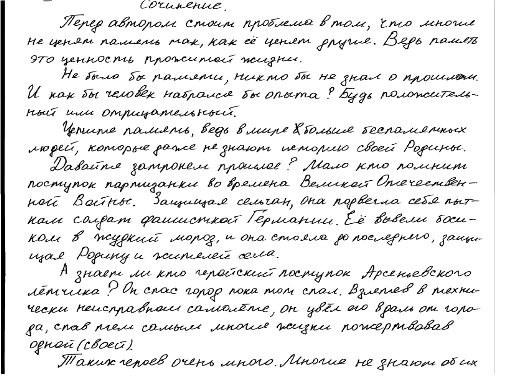 Сочинение.
Перед автором стоит проблема в том, что многие
не ценят память так, как её ценят другие. Ведь память
это ценность прожитой жизни.
Не было бы памяти, никто бы не знал о прошлом.
И как бы человек набрался бы опыта? Будь положитель-
ный или отрицательный.
Цените память, ведь в мире больше беспамятных
людей, которые даже не знают историю своей Родины.
Давайте затронем прошлое? Мало кто помнит
поступок партизанки во времена Великой Отечествен-
ной Войны. Защищая сельчан, она подвегла себя пыт-
кам солдат фашисткой Германии. Её вывели боси-
ком в жудкий мороз, и она стояла до последнего, защи-
щая Родину и жителей села.
А знает ли кто геройский поступок Арсеньевского
лётчика? Он спас город пока тот спал. Взлетев в техни-
чески неисправном самолёте, он увёл его вдаль от горо-
да, спав тем самым многие жизни пожертвовав
одной (своей).
Таких героев очень много. Многие не знают об их